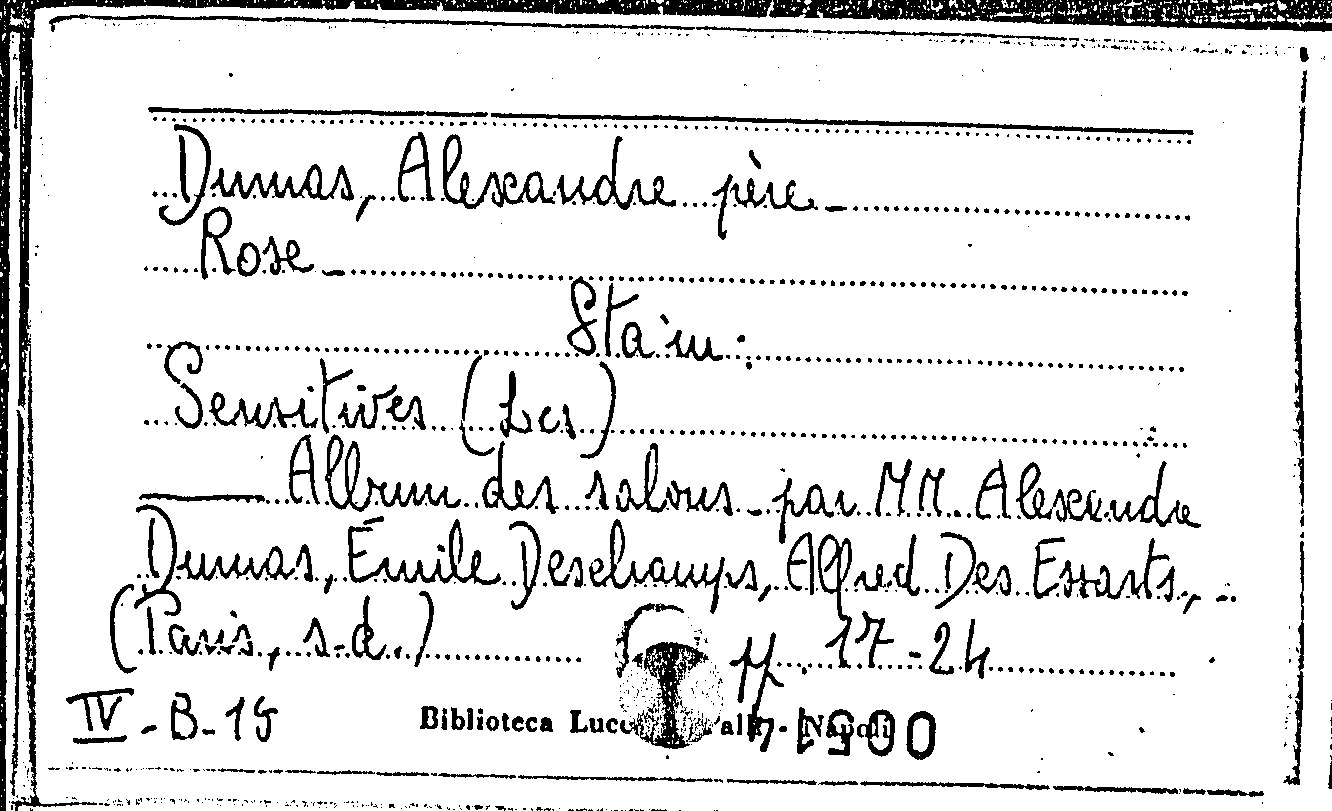 Dumas, Alexandre père -
Rose -
Sta in :
Sensitives (Les)
Album des salons - par MM. Alexandre
Dumas, Émile Deschamps, Alfred Des Essarts, ..
(Paris, s.d.) pp. 17-24
IV - B - 15 Biblioteca - Napoli